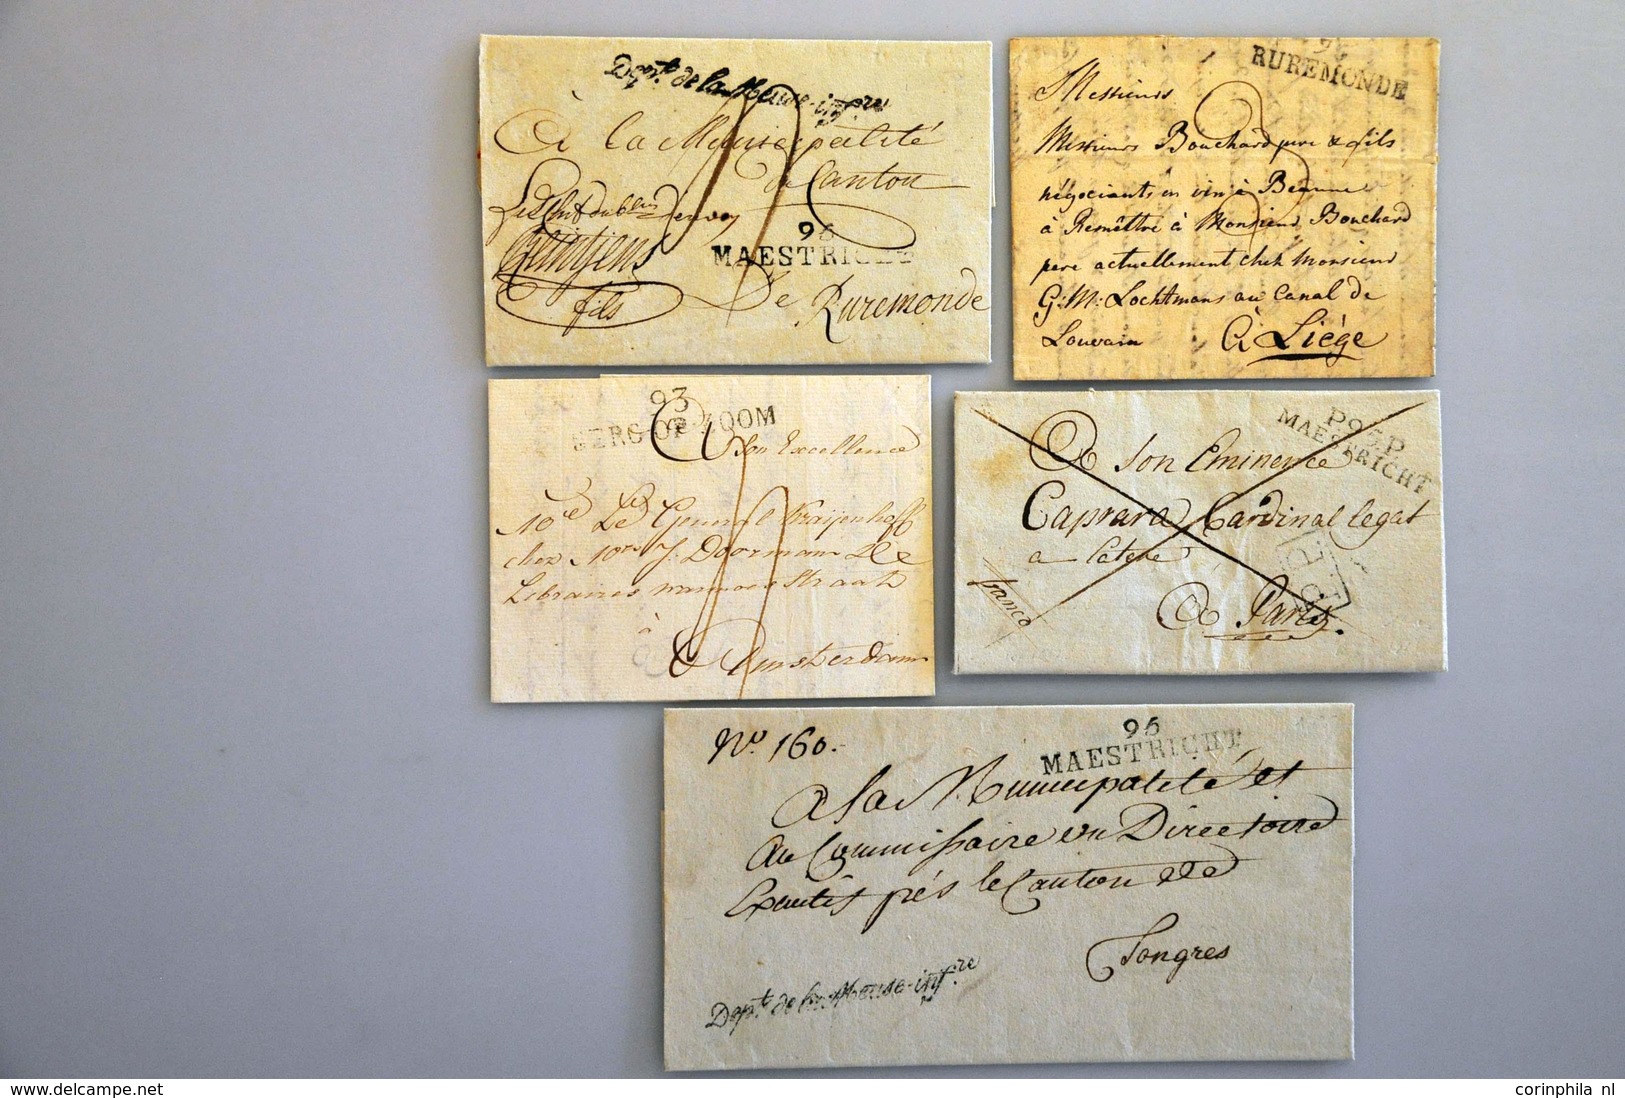 Dept. de la Meuse-infre
à la Municipalité
du Canton
95
MAESTRICHT
fils
De Ruremonde
96
RUREMONDE
Messieurs
Messieurs Bouchard pere & fils
négociants en vin à Beaune
à Remêttre à Monsieur Bouchard
pere actuellement chek Monsieur
G: M: Lochtmans au Canal de
Louvain à Liège
93
BERG-OP-ZOOM
à Son Excellence
Le General Kraijenhoff
chez J. Doorman
Libraires straat
à
à Amsterdam
P.95.P.
MAESTRICHT
A Son Eminence
Caprara Cardinal legat
a latere
franco
A Paris.
No. 160.
95
MAESTRICHT
A la Municipalité et
Au Commissaire du Directoire
Exécutif prés le Canton de
Tongres
Dept. de la Meuse-infre
corinphila nl